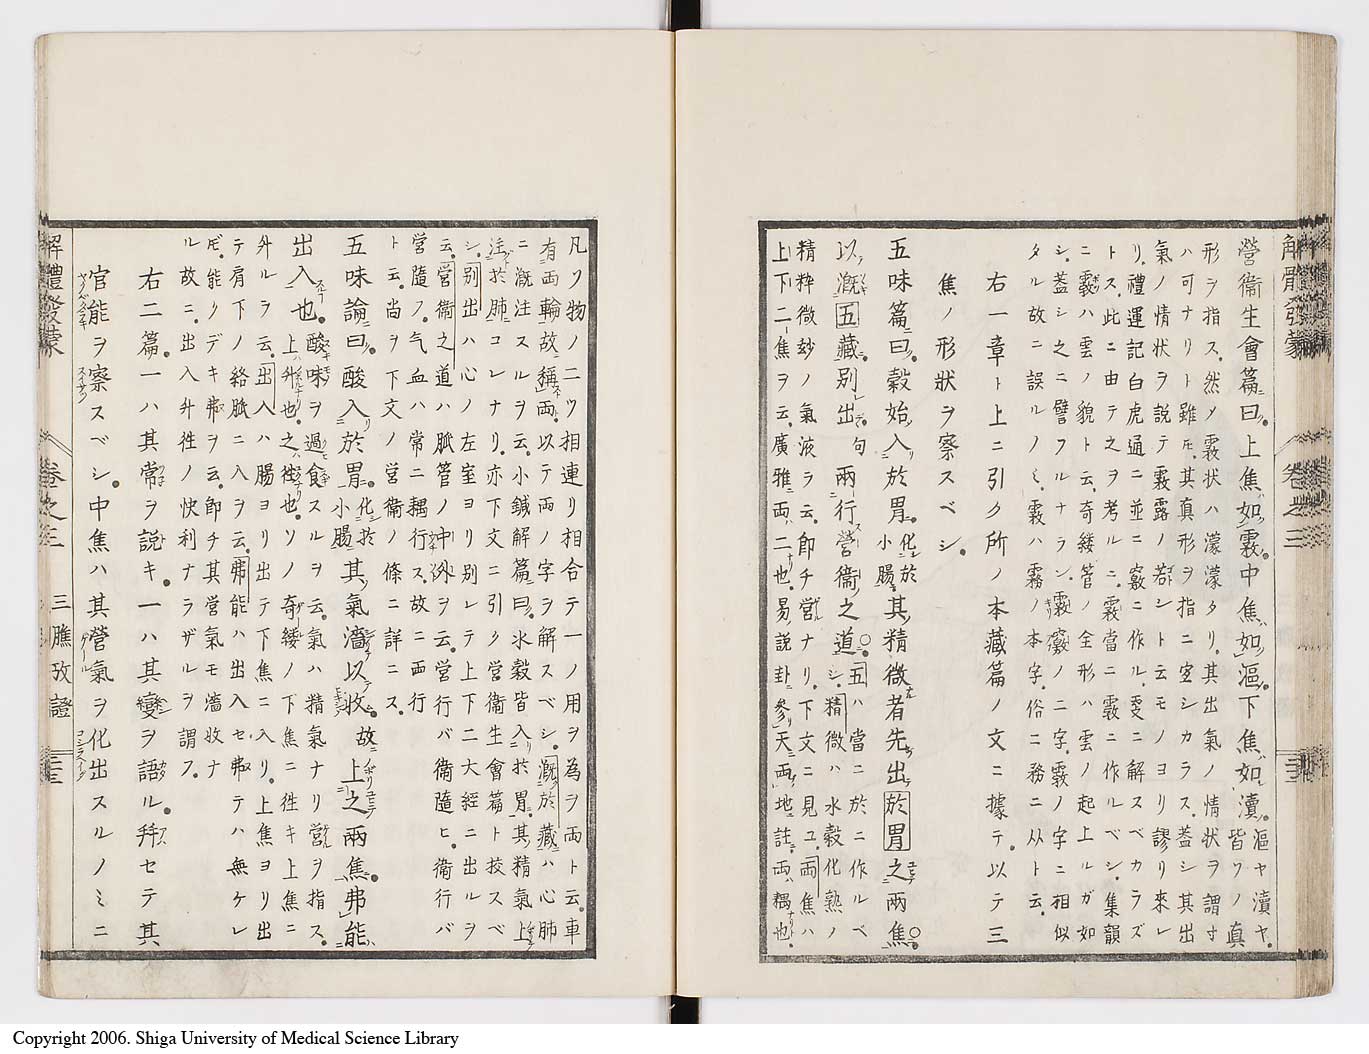 解體發蒙
卷之三
營衞生會篇曰。上焦如霧。中焦如漚。下焦如瀆。漚ヤ瀆ヤ。皆ソノ真
形ヲ指ス。然ノ霧状ハ濛濛タリ。其出氣ノ情状ヲ謂寸
ハ可ナリト雖モ。其真形ヲ指ニ室シカラス。葢シ其出
氣ノ情状ヲ説テ霧露ノ若シト云モノヨリ謬リ來レ
リ。禮運記白虎通ニ並ニ
トス。此ニ由テ之ヲ考ルニ。
ニ 雲ノ貌ト云。奇縷管ノ全形ハ雲ノ起上ルガ如
シ。葢シ之ニ譬フルナラン。
タル故ニ誤ルノミ。霧ハ霧ノ本字。俗ニ務ニ从ト云。
右一章ト上ニ引ク所ノ本藏篇ノ文ニ據テ。以テ三
焦ノ形状ヲ察スベシ。
五味篇曰。穀始入於胃。化於小腸其精微者先出於胃之兩焦。
以漑五藏。別出句兩行營衞之道。五ハ當ニ於ニ作ルベシ。精微ハ水穀化熟ノ
精粹微妙ノ氣液ヲ云。即チ營ナリ。下文ニ見ユ。兩焦ハ
上下二焦ヲ云。廣雅兩ハ二也。易説卦參天兩地註。兩ハ耦也。
凡ソ物ノ二ツ相連リ相合テ一ノ用ヲ為ヲ兩ト云。車
有兩輪故稱兩。以テ兩ノ字ヲ解スベシ。漑於藏ハ心肺
ニ漑注スルヲ云。小鍼解篇曰。水穀皆入於胃。其精氣上
注於肺コレナリ。亦下文ニ引ク營衞生會篇ト挍スベ
シ。別出ハ心ノ左室ヨリ別レテ上下二大經ニ出ルヲ
云。營衞之道ハ脈管ノ中外ヲ云。營行バ衞隨ヒ。衞行バ
營隨フ。气血ハ常ニ耦行ス。故ニ兩行
ト云。尚ヲ下文ノ營衞ノ條ニ詳ニス。
五味論曰。酸入於胃。化於小腸其氣濇以收。故上之兩焦。弗能
出入也。上ハ升也。之ハ徃也。酸味ヲ過食スルヲ云。氣ハ精氣ナリ營ヲ指ス。ソノ奇縷ノ下焦ニ徃キ上焦ニ
外ルヲ云。出入ハ腸ヨリ出テ下焦ニ入リ。上焦ヨリ出
テ肩下ノ絡脈ニ入ヲ云。弗能ハ出入セ弗テハ無ケレ
𪜈。能リデキ弗ヲ云。即チ其營氣モ濇收ナ
ル故ニ。出入升徃ノ快利ナラザルヲ謂フ。
右二篇。一ハ其常ヲ説キ。一ハ其變ヲ語ル。拜セテ其
官能ヲ察スベシ。中焦ハ其營氣ヲ化出スルノミニ
解體發蒙
卷之三
三膲攷證
Copyright 2006. Shiga University of Medical Science Library